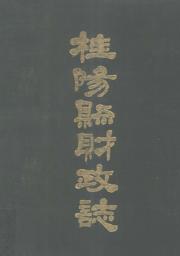 桂陽縣財政誌